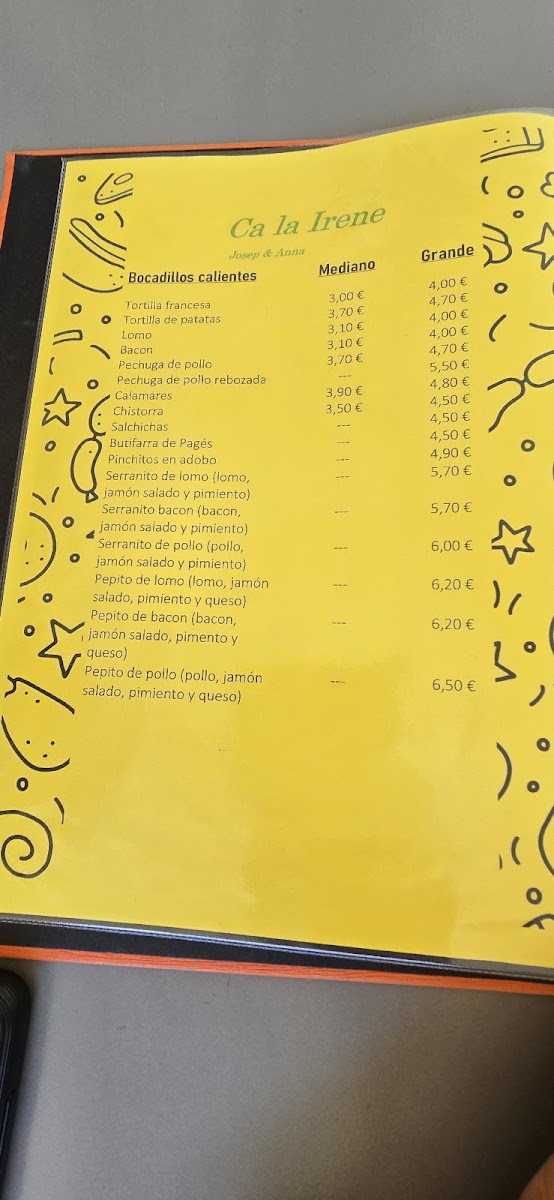 Ca la Irene
Josep & Anna
Bocadillos calientes Mediano Grande
Tortilla francesa 3,00 € 4,00 €
Tortilla de patatas 3,70 € 4,70 €
Lomo 3,10 € 4,00 €
Bacon 3,10 € 4,00 €
Pechuga de pollo 3,70 € 4,70 €
Pechuga de pollo rebozada --- 5,50 €
Calamares 3,90 € 4,80 €
Chistorra 3,50 € 4,50 €
Salchichas --- 4,50 €
Butifarra de Pagés --- 4,50 €
Pinchitos en adobo --- 4,90 €
Serranito de lomo (lomo, --- 5,70 €
jamón salado y pimiento)
Serranito bacon (bacon, --- 5,70 €
jamón salado y pimiento)
Serranito de pollo (pollo, --- 6,00 €
jamón salado y pimiento)
Pepito de lomo (lomo, jamón --- 6,20 €
salado, pimiento y queso)
Pepito de bacon (bacon, --- 6,20 €
jamón salado, pimento y
queso)
Pepito de pollo (pollo, jamón --- 6,50 €
salado, pimiento y queso)